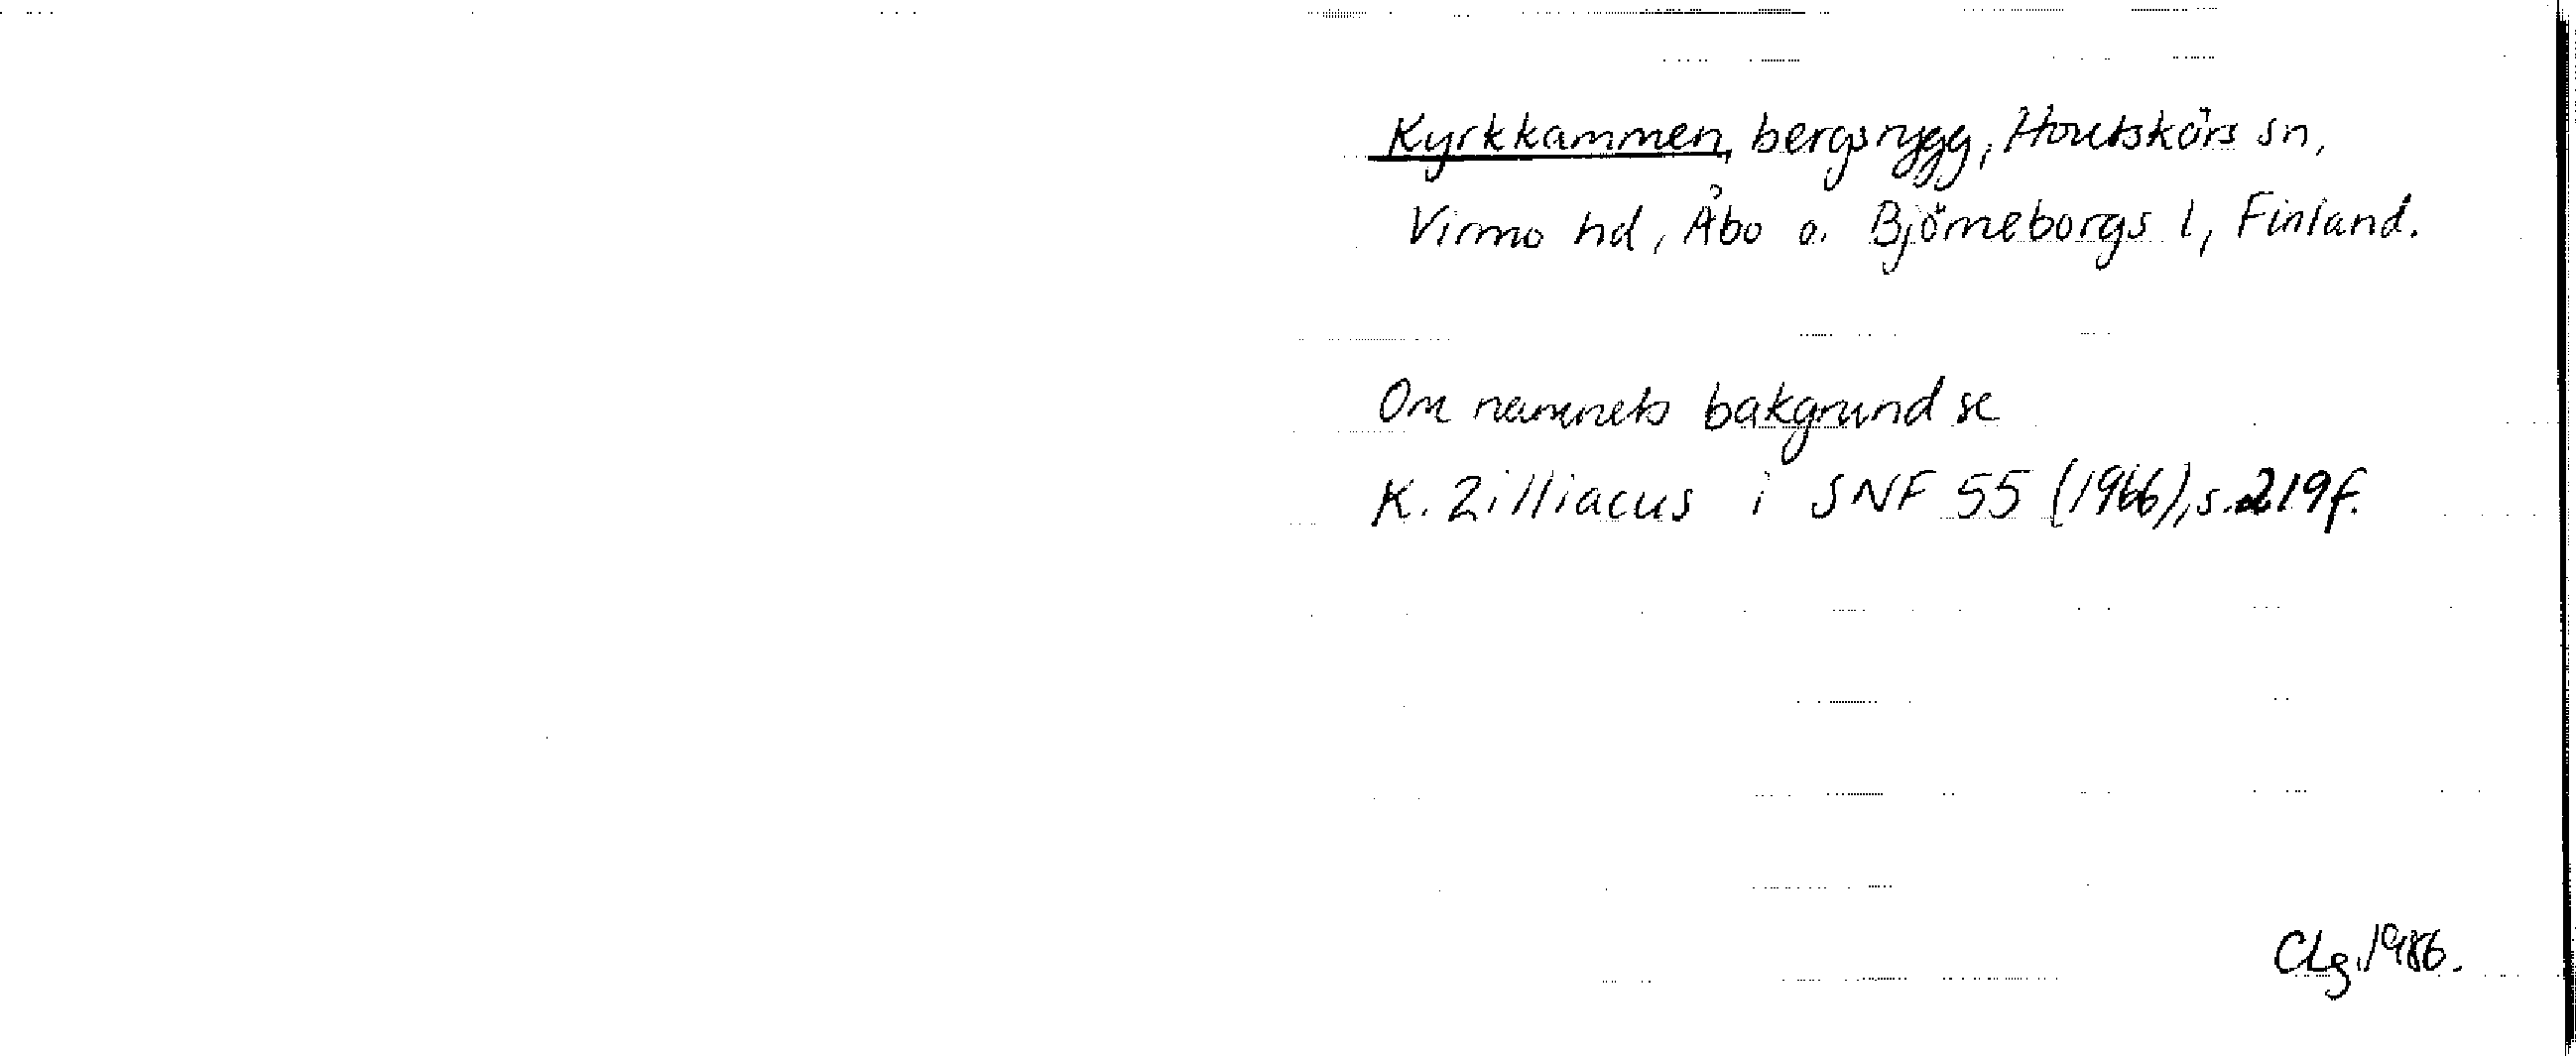 Kyrkkammen, bergsrygg, Houtskärs sn,
Virmo hd, Åbo o. Björneborgs l, Finland.
Om namnets bakgrund se
K. Zilliacus i SNF 55 (1966), s. 219f.
CLg. 1986.